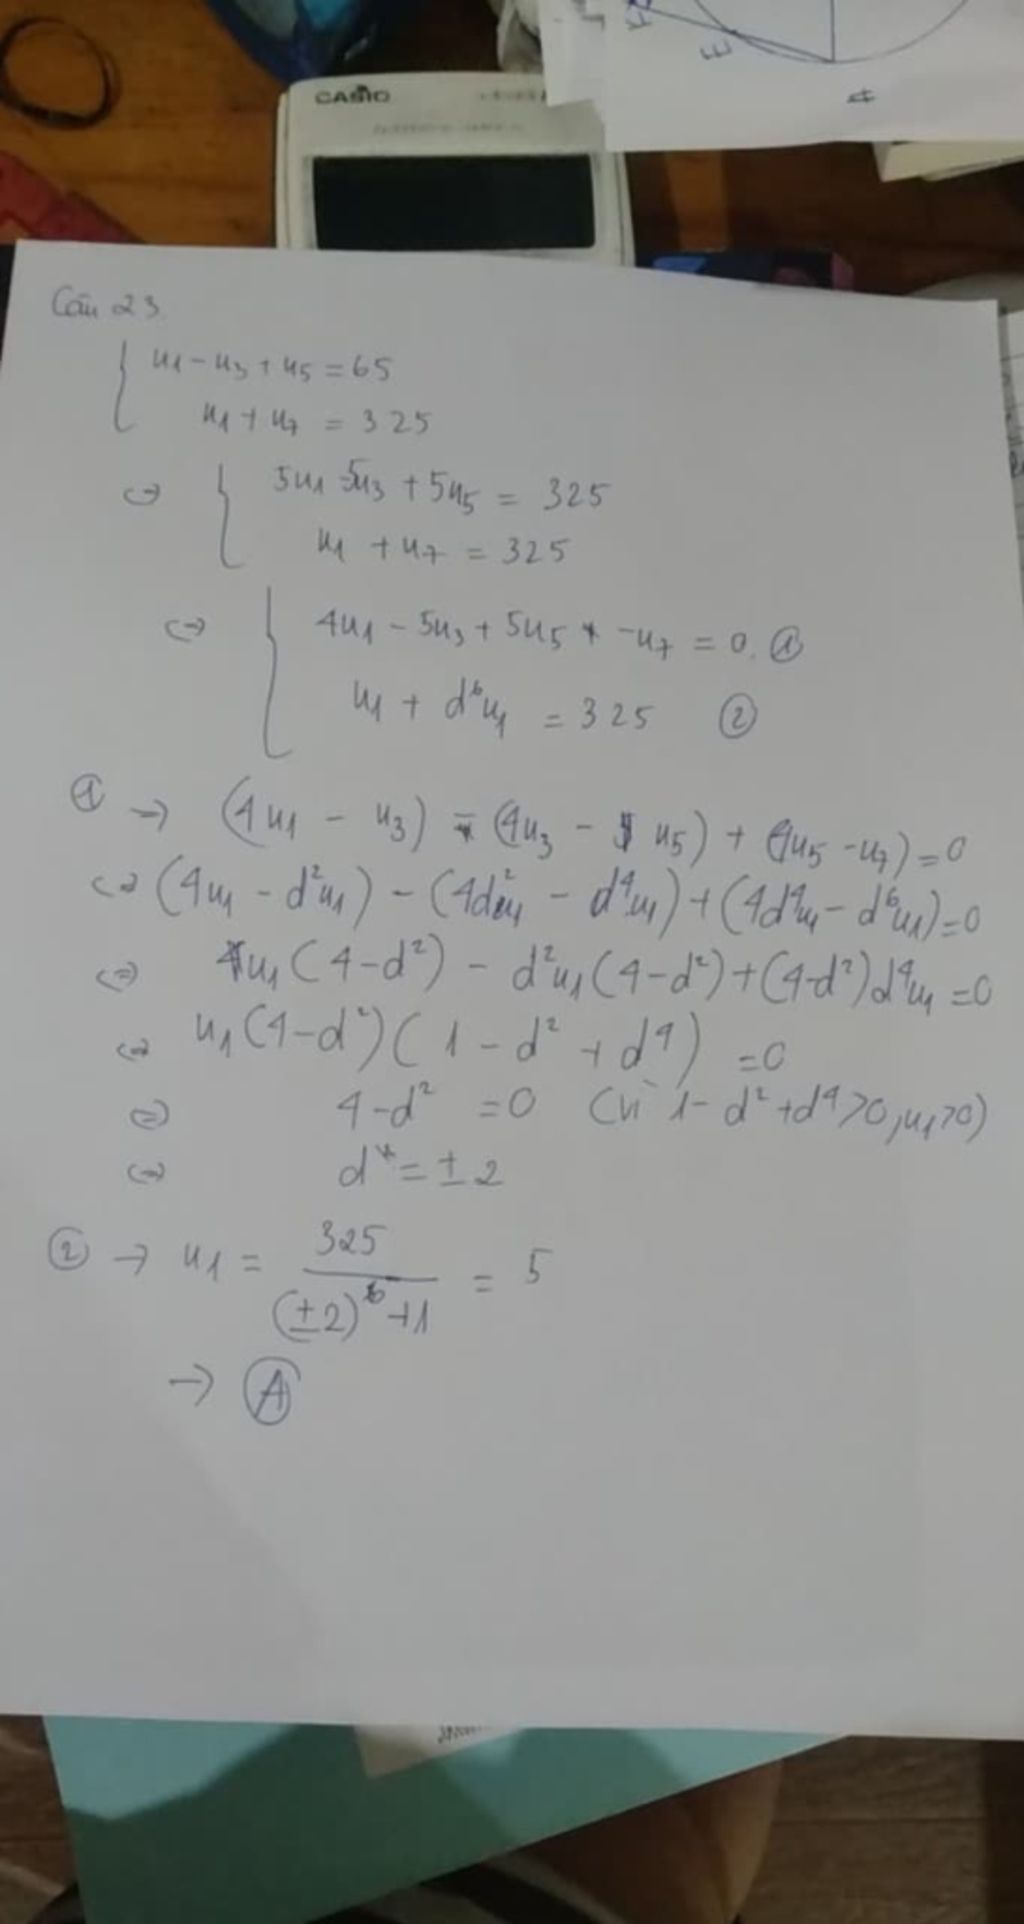 CASIO
E
A
Câu 23.
u1 - u3 + u5 = 65
u1 + u7 = 325
<=> 5u1 - 5u3 + 5u5 = 325
u1 + u7 = 325
<=> 4u1 - 5u3 + 5u5 - u7 = 0. ①
u1 + d⁶u1 = 325 ②
① → (4u1 - u3) - (4u3 - u5) + (4u5 - u7) = 0
<=> (4u1 - d²u1) - (4d²u1 - d⁴u1) + (4d⁴u1 - d⁶u1) = 0
<=> u1(4-d²) - d²u1(4-d²) + (4-d²)d⁴u1 = 0
<=> u1(4-d²)(1 - d² + d⁴) = 0
<=> 4-d² = 0 (vì 1 - d² + d⁴ > 0, u1 > 0)
<=> d = ±2
② → u1 = 325 / ((±2)⁶ + 1) = 5
→ Ⓐ